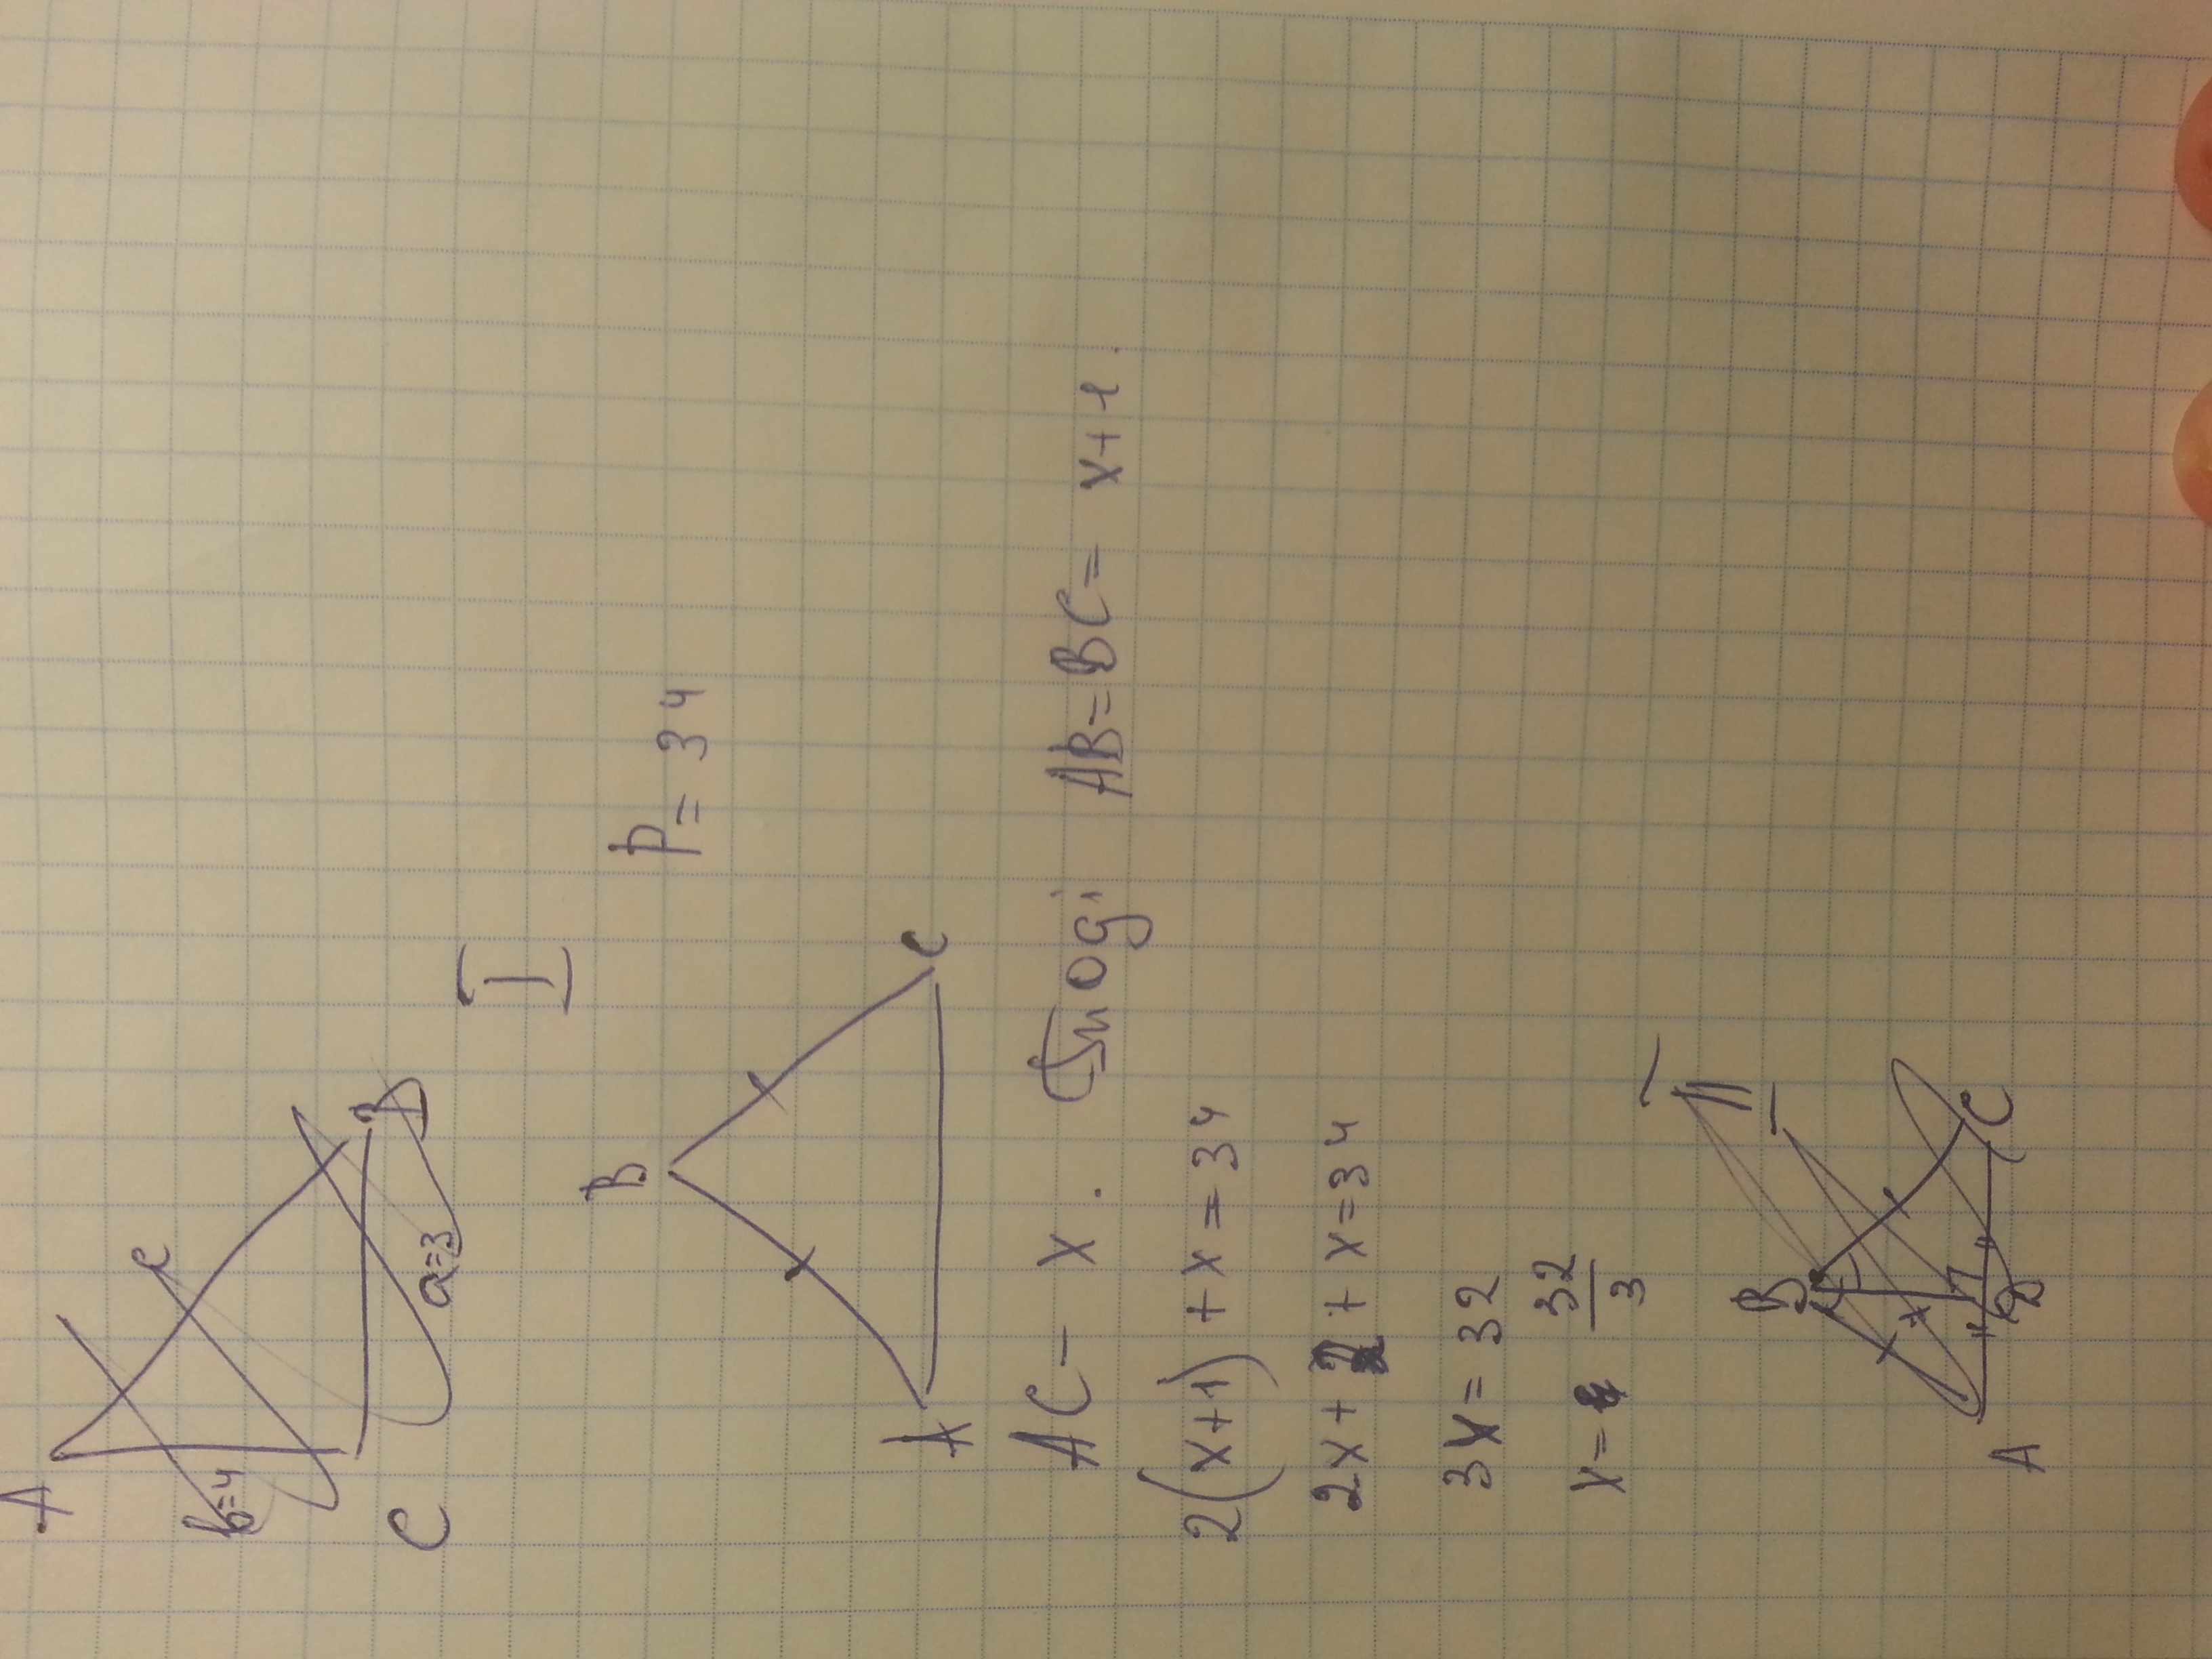 A
b=4
c
C
B
a=3
I
B
P = 34
A
C
AC - x. Тоді AB=BC= x+1
2(x+1) + x = 34
2x + 2 + x = 34
3x = 32
x = 32/3
II
B
A
C